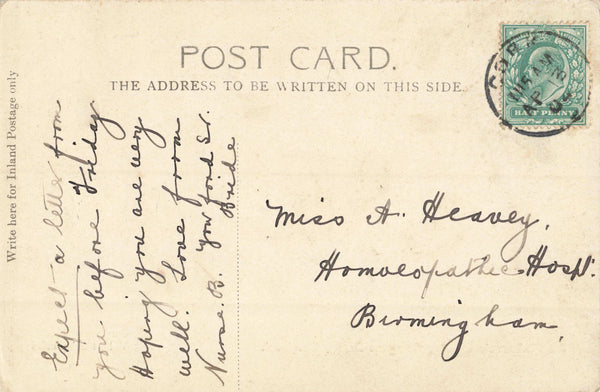 POST CARD.
THE ADDRESS TO BE WRITTEN ON THIS SIDE.
Write here for Inland Postage only
Expect a letter from
you before Friday
Hoping you are very
well. Love from
Nurse. B. your fond Sr.
Bride
Miss A. Heavey,
Homoeopathic Hospl.
Birmingham,
CORK
11.15 AM
AP
HALF PENNY